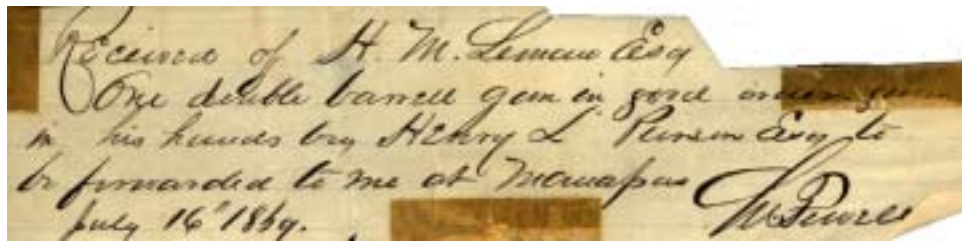 Received of H. M. Leman Esq
One double barrell gun in good order
in his hands by Henry L. Esq to
be forwarded to me at Manapas
July 16" 1869.